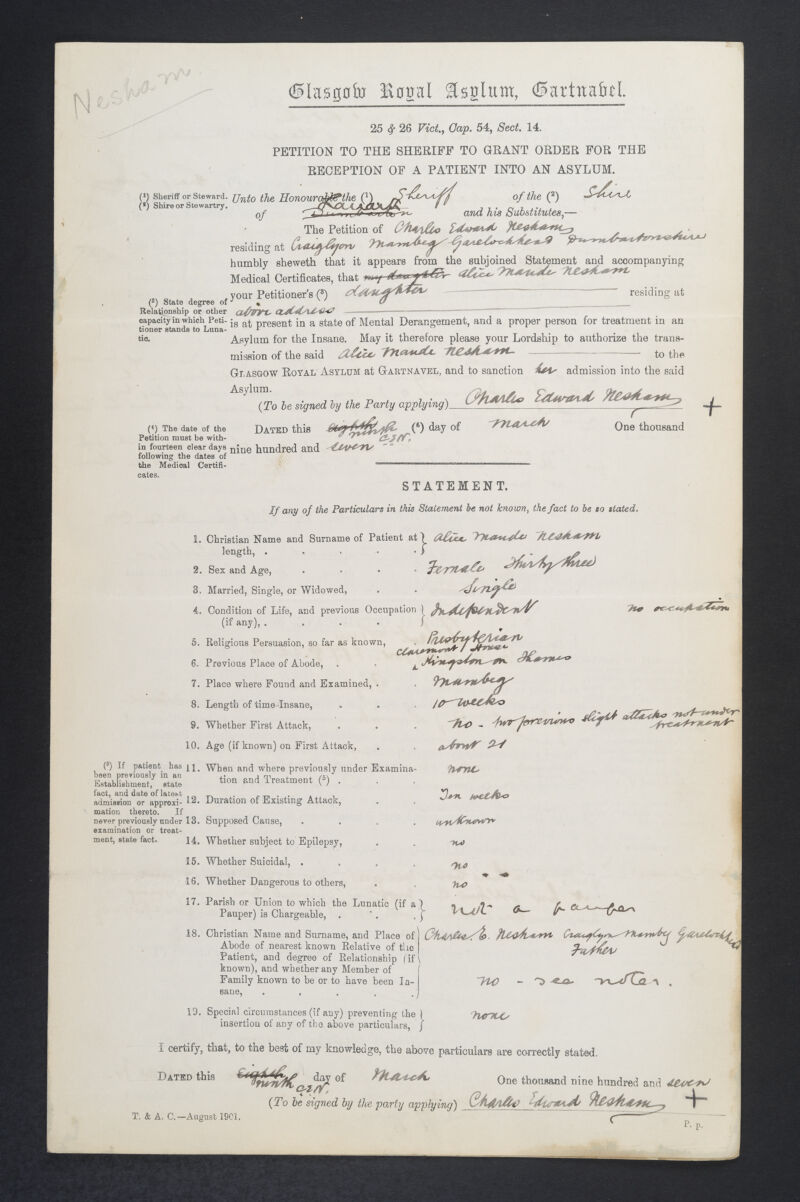 Nesham.
Glasgow Royal Asylum, Gartnabel.
25 & 26 Vict., Cap. 54, Sect. 14.
PETITION TO THE SHERIFF TO GRANT ORDER FOR THE
RECEPTION OF A PATIENT INTO AN ASYLUM.
(¹) Sheriff or Steward.
(²) Shire or Stewartry.
Unto the Honourable the (¹) Sheriff of the (²) Shire
Lanark
of Dumbarton and his Substitutes,—
The Petition of Charles Edward Nesham
residing at Craiglyon Mambeg Garelochhead Dumbartonshire
humbly sheweth that it appears from the subjoined Statement and accompanying
Medical Certificates, that my daughter Alice Maude Nesham
(³) State degree of Relationship or other capacity in which Petitioner stands to Lunatic.
your Petitioner's (³) daughter residing at
above address
is at present in a state of Mental Derangement, and a proper person for treatment in an
Asylum for the Insane. May it therefore please your Lordship to authorize the trans-
mission of the said Alice Maude Nesham to the
GLASGOW ROYAL ASYLUM AT GARTNAVEL, and to sanction her admission into the said
Asylum.
(To be signed by the Party applying) Charles Edward Nesham +
(⁴) The date of the Petition must be within fourteen clear days following the dates of the Medical Certificates.
DATED this eighth ninth C.E.N. (⁴) day of March One thousand
nine hundred and seven
STATEMENT.
If any of the Particulars in this Statement be not known, the fact to be so stated.
1. Christian Name and Surname of Patient at length, . Alice Maude Nesham
2. Sex and Age, Female Thirty three
3. Married, Single, or Widowed, Single
4. Condition of Life, and previous Occupation (if any), . Independent no occupation
5. Religious Persuasion, so far as known, Presbyterian
Claremont House
6. Previous Place of Abode, . Kingston on Thames
7. Place where Found and Examined, . Mambeg
8. Length of time Insane, 10 weeks
9. Whether First Attack, no - two previous slight attacks not under treatment
10. Age (if known) on First Attack, about 21
(⁵) If patient has been previously in an Establishment, state fact, and date of latest admission or approximation thereto. If never previously under examination or treatment, state fact.
11. When and where previously under Examina-
tion and Treatment (⁵) . none
12. Duration of Existing Attack, Ten weeks
13. Supposed Cause, unknown
14. Whether subject to Epilepsy, no
15. Whether Suicidal, . no
16. Whether Dangerous to others, no
17. Parish or Union to which the Lunatic (if a
Pauper) is Chargeable, . not a pauper
18. Christian Name and Surname, and Place of Charles E. Nesham Craiglyon Mambeg Garelochhead
Abode of nearest known Relative of the Father
Patient, and degree of Relationship (if
known), and whether any Member of
Family known to be or to have been In- no - see notes.
sane,
19. Special circumstances (if any) preventing the none
insertion of any of the above particulars,
I certify, that, to the best of my knowledge, the above particulars are correctly stated.
DATED this eighth ninth C.E.N. day of March One thousand nine hundred and seven
(To be signed by the party applying) Charles Edward Nesham +
T. & A. C.—August 1901.
P. p.